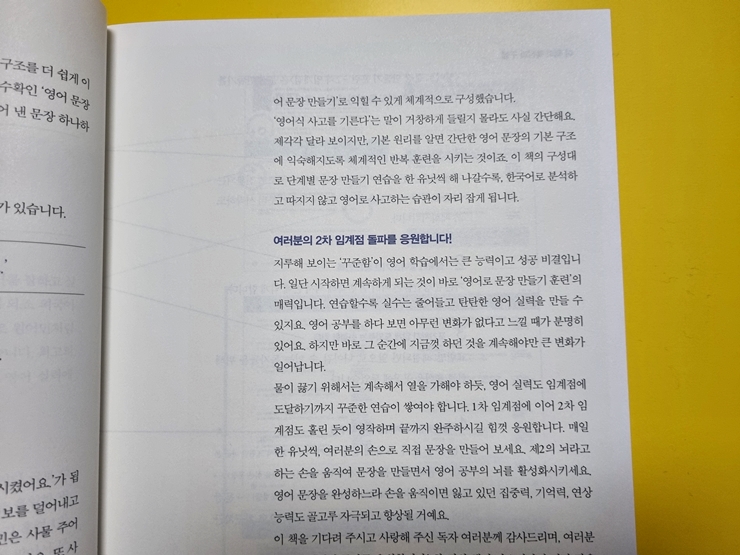 구조를 더 쉽게 이
수확인 ‘영어 문장
어 낸 문장 하나하
가 있습니다.
시켰어요.’가 됩
보를 덜어내고
인은 사물 주어
어 문장 만들기’로 익힐 수 있게 체계적으로 구성했습니다.
‘영어식 사고를 기른다’는 말이 거창하게 들릴지 몰라도 사실 간단해요.
제각각 달라 보이지만, 기본 원리를 알면 간단한 영어 문장의 기본 구조
에 익숙해지도록 체계적인 반복 훈련을 시키는 것이죠. 이 책의 구성대
로 단계별 문장 만들기 연습을 한 유닛씩 해 나갈수록, 한국어로 분석하
고 따지지 않고 영어로 사고하는 습관이 자리 잡게 됩니다.
여러분의 2차 임계점 돌파를 응원합니다!
지루해 보이는 ‘꾸준함’이 영어 학습에서는 큰 능력이고 성공 비결입니
다. 일단 시작하면 계속하게 되는 것이 바로 ‘영어로 문장 만들기 훈련’의
매력입니다. 연습할수록 실수는 줄어들고 탄탄한 영어 실력을 만들 수
있지요. 영어 공부를 하다 보면 아무런 변화가 없다고 느낄 때가 분명히
있어요. 하지만 바로 그 순간에 지금껏 하던 것을 계속해야만 큰 변화가
일어납니다.
물이 끓기 위해서는 계속해서 열을 가해야 하듯, 영어 실력도 임계점에
도달하기까지 꾸준한 연습이 쌓여야 합니다. 1차 임계점에 이어 2차 임
계점도 홀린 듯이 영작하며 끝까지 완주하시길 힘껏 응원합니다. 매일
한 유닛씩, 여러분의 손으로 직접 문장을 만들어 보세요. 제2의 뇌라고
하는 손을 움직여 문장을 만들면서 영어 공부의 뇌를 활성화시키세요.
영어 문장을 완성하느라 손을 움직이면 잃고 있던 집중력, 기억력, 연상
능력도 골고루 자극되고 향상될 거예요.
이 책을 기다려 주시고 사랑해 주신 독자 여러분께 감사드리며, 여러분